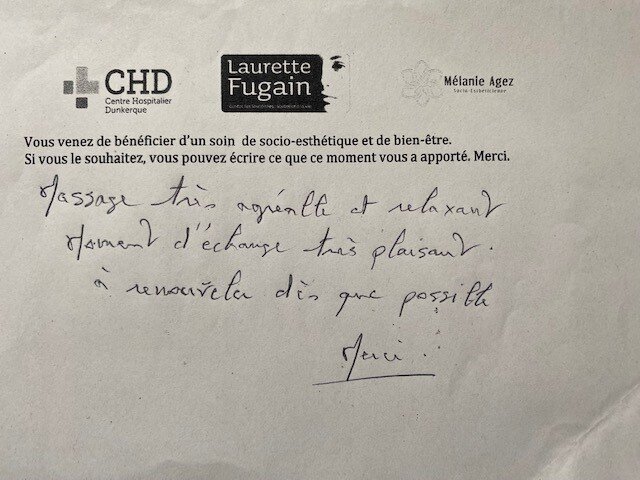 CHD
Centre Hospitalier
Dunkerque
Laurette
Fugain
Mélanie Agez
Socio-Esthéticienne
Vous venez de bénéficier d'un soin de socio-esthétique et de bien-être.
Si vous le souhaitez, vous pouvez écrire ce que ce moment vous a apporté. Merci.
Massage très agréable et relaxant
Moment d'échange très plaisant.
à renouveler dès que possible
Merci